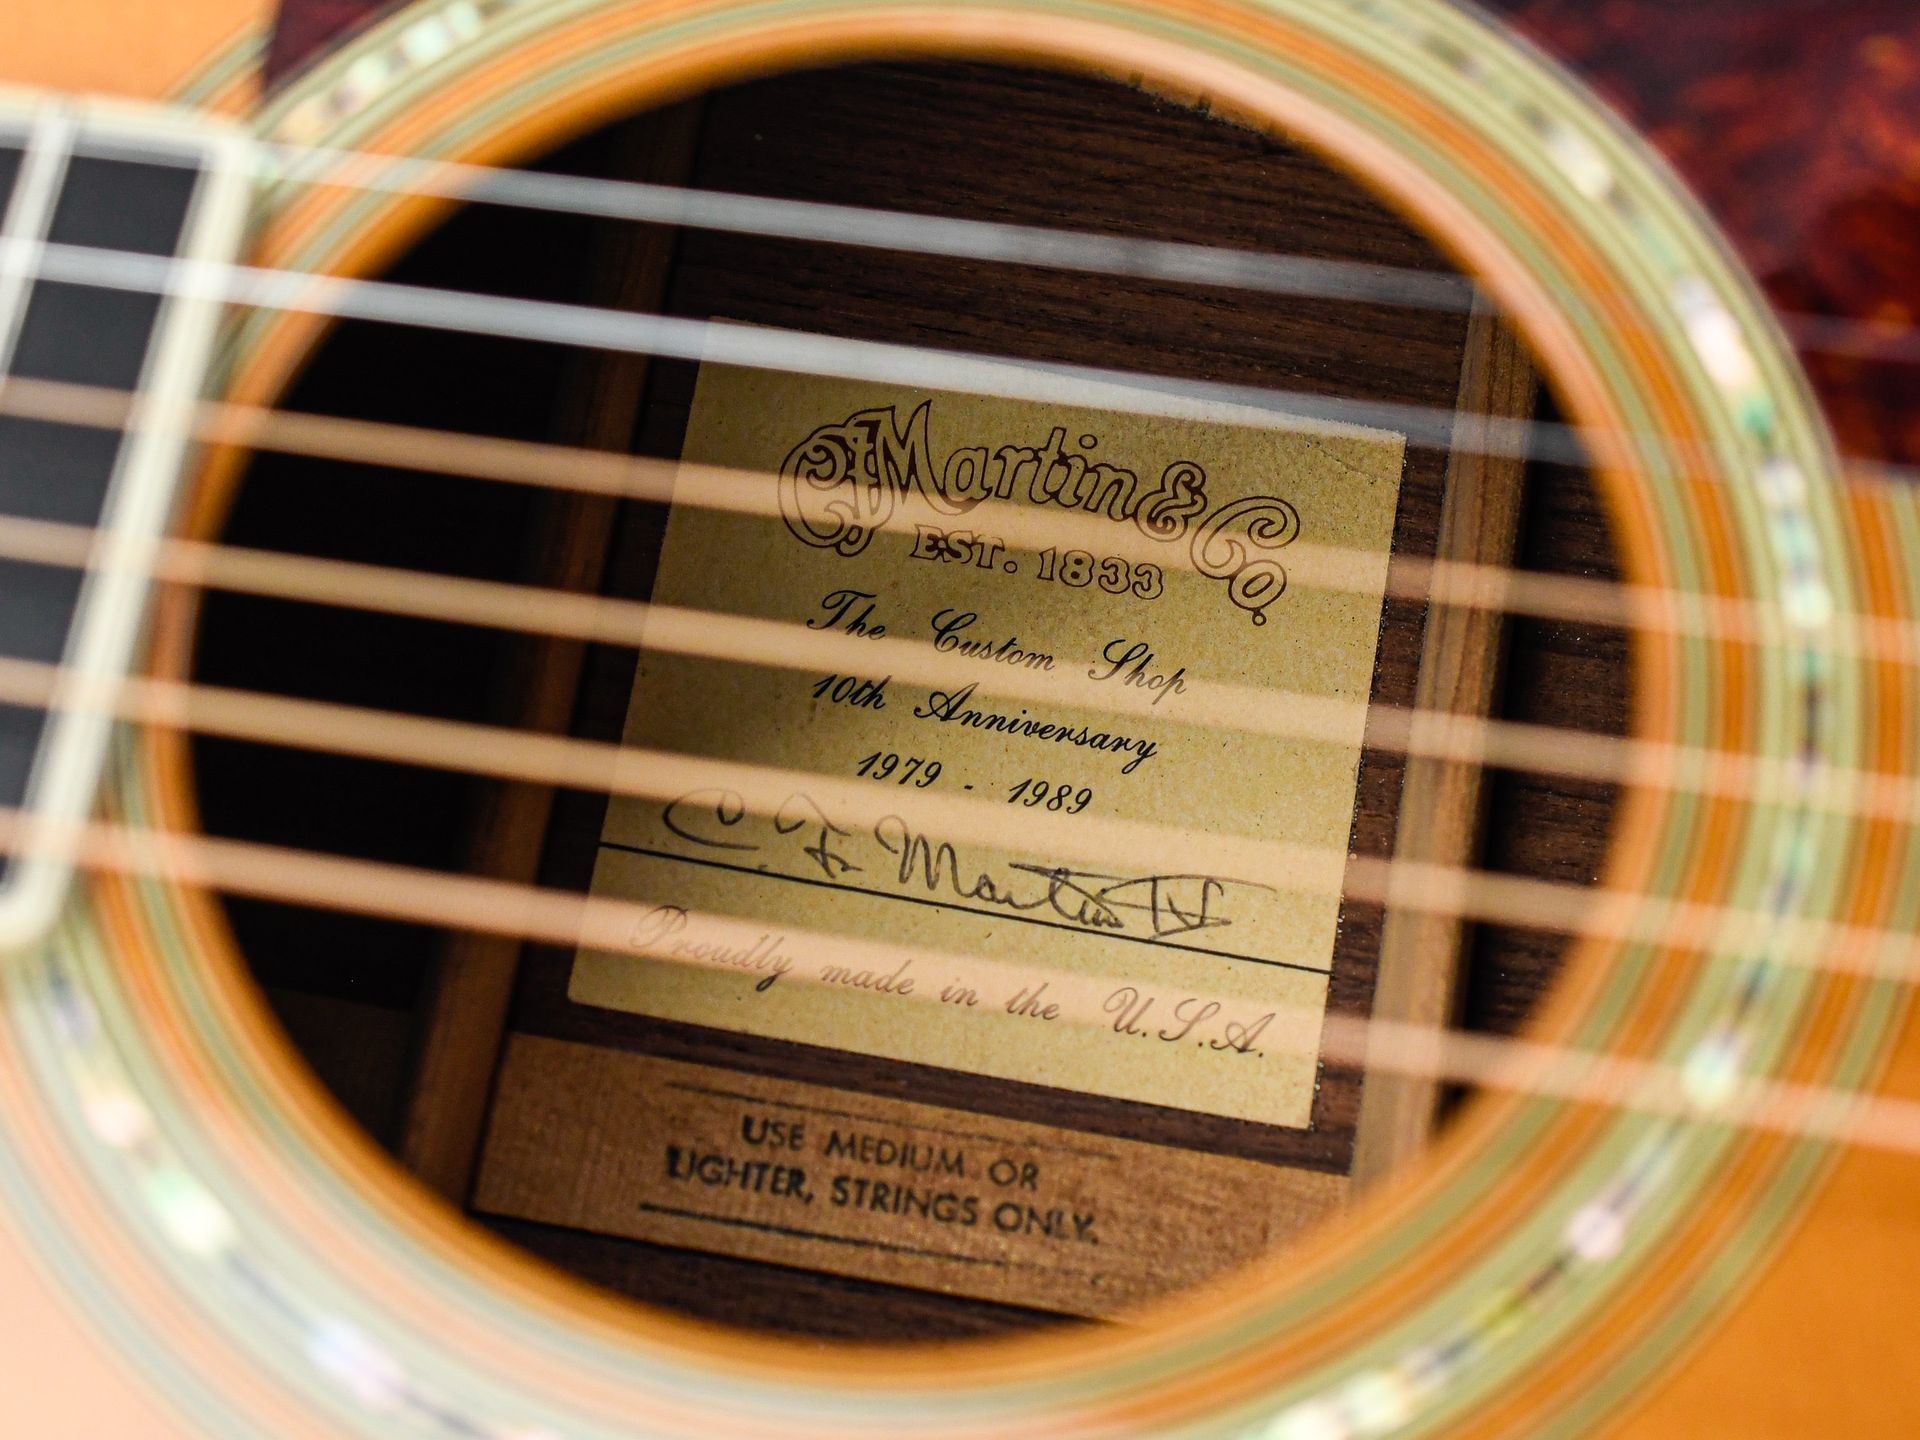 CF Martin & Co.
EST. 1833
The Custom Shop
10th Anniversary
1979 - 1989
C. F. Martin IV
Proudly made in the U.S.A.
USE MEDIUM OR
LIGHTER, STRINGS ONLY.